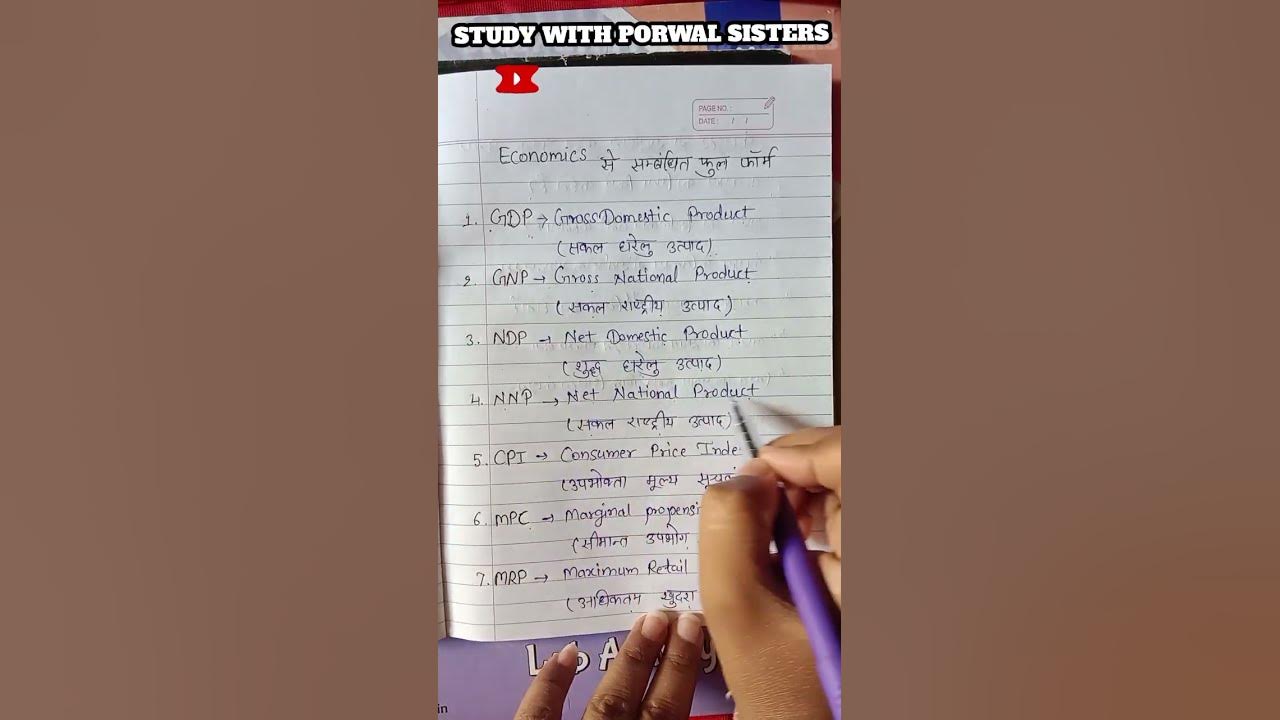 STUDY WITH PORWAL SISTERS
PAGE NO.:
DATE: / /
Economics से सम्बंधित फुल फॉर्म
1. GDP → Gross Domestic Product
(सकल घरेलु उत्पाद)
2. GNP → Gross National Product
(सकल राष्ट्रीय उत्पाद)
3. NDP → Net Domestic Product
(शुद्ध घरेलु उत्पाद)
4. NNP → Net National Product
(सकल राष्ट्रीय उत्पाद)
5. CPI → Consumer Price Inde
(उपभोक्ता मूल्य
6. MPC → Marginal propensi
(सीमान्त उपभोग
7. MRP → Maximum Retail
(अधिकतम खुदरा
in